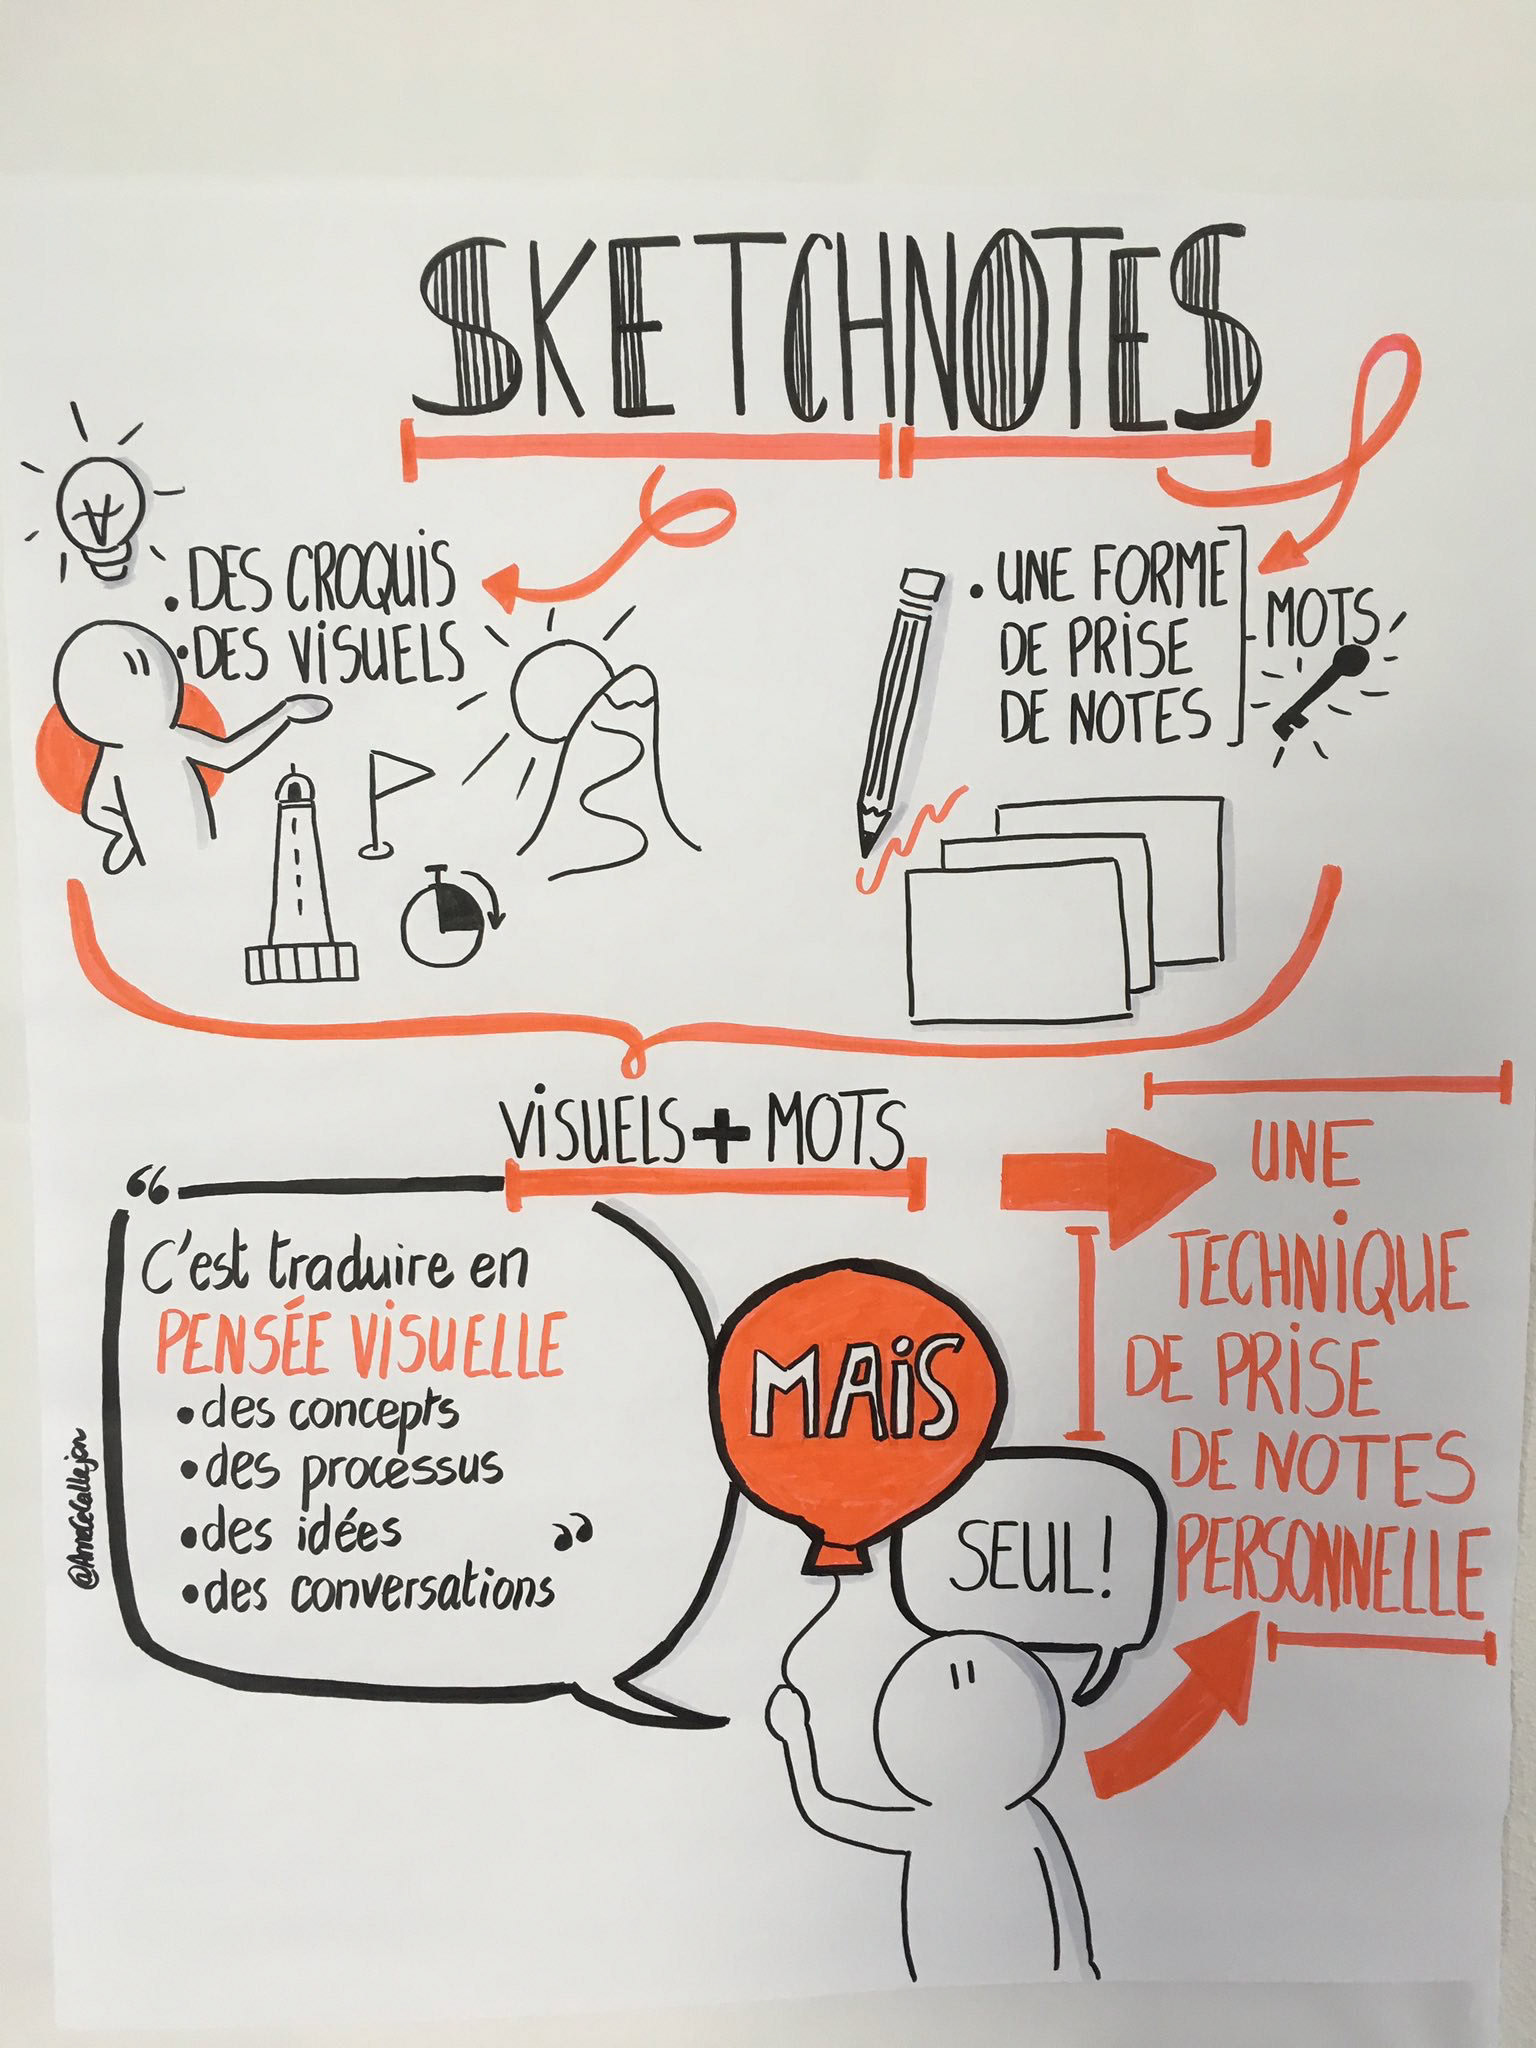 SKETCHNOTES
• DES CROQUIS
• DES VISUELS
• UNE FORME
DE PRISE
DE NOTES
MOTS
VISUELS + MOTS
“
C'est traduire en
PENSÉE VISUELLE
• des concepts
• des processus
• des idées
• des conversations
”
MAIS
SEUL!
UNE
TECHNIQUE
DE PRISE
DE NOTES
PERSONNELLE